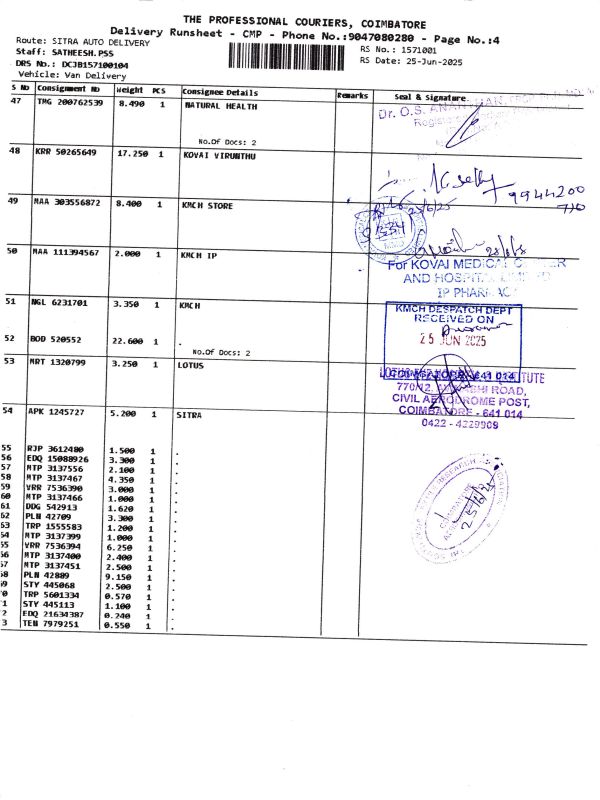 THE PROFESSIONAL COURIERS, COIMBATORE
Delivery Runsheet - CMP - Phone No.:9047080280 - Page No.:4
Route: SITRA AUTO DELIVERY
RS No.: 1571001
Staff: SATHEESH.PSS
RS Date: 25-Jun-2025
DRS No.: DCJB157100104
Vehicle: Van Delivery
S No Consignment No Weight PCS Consignee Details Remarks Seal & Signature
47 TMG 200762539 8.490 1 NATURAL HEALTH
Dr. O.S.
No.Of Docs: 2
48 KRR 50265649 17.250 1 KOVAI VIRUNTHU
9944200
710
49 MAA 303556872 8.400 1 KMCH STORE
25/6/25
334
50 MAA 111394567 2.000 1 KMCH IP
For KOVAI MEDICAL CENTER
AND HOSPITAL LIMITED
IP PHARMACY
51 NGL 6231701 3.350 1 KMCH
KMCH DESPATCH DEPT
RECEIVED ON
25 JUN 2025
COIMBATORE - 641 014
52 BOD 520552 22.600 1 .
No.Of Docs: 2
53 MRT 1320799 3.250 1 LOTUS
LOTUS INSTITUTE
770/12, ROAD,
CIVIL AERODROME POST,
COIMBATORE - 641 014
0422 - 4229909
54 APK 1245727 5.200 1 SITRA
55 RJP 3612480 1.500 1 .
56 EDQ 15088926 3.300 1 .
57 MTP 3137556 2.100 1 .
58 MTP 3137467 4.350 1 .
59 VRR 7536390 3.000 1 .
60 MTP 3137466 1.000 1 .
61 DDG 542913 1.620 1 .
62 PLN 42709 3.300 1 .
63 TRP 1555583 1.200 1 .
64 MTP 3137399 1.000 1 .
65 VRR 7536394 6.250 1 .
66 MTP 3137400 2.400 1 .
67 MTP 3137451 2.500 1 .
68 PLN 42889 9.150 1 .
69 STY 445068 2.500 1 .
0 TRP 5601334 0.570 1 .
1 STY 445113 1.100 1 .
2 EDQ 21634387 0.240 1 .
3 TEN 7979251 0.550 1 .
COIMBATORE
25/6/25